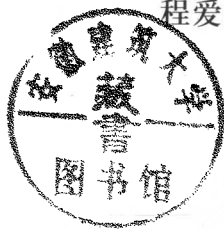 程爱
安徽建筑大学
藏
书
图书馆